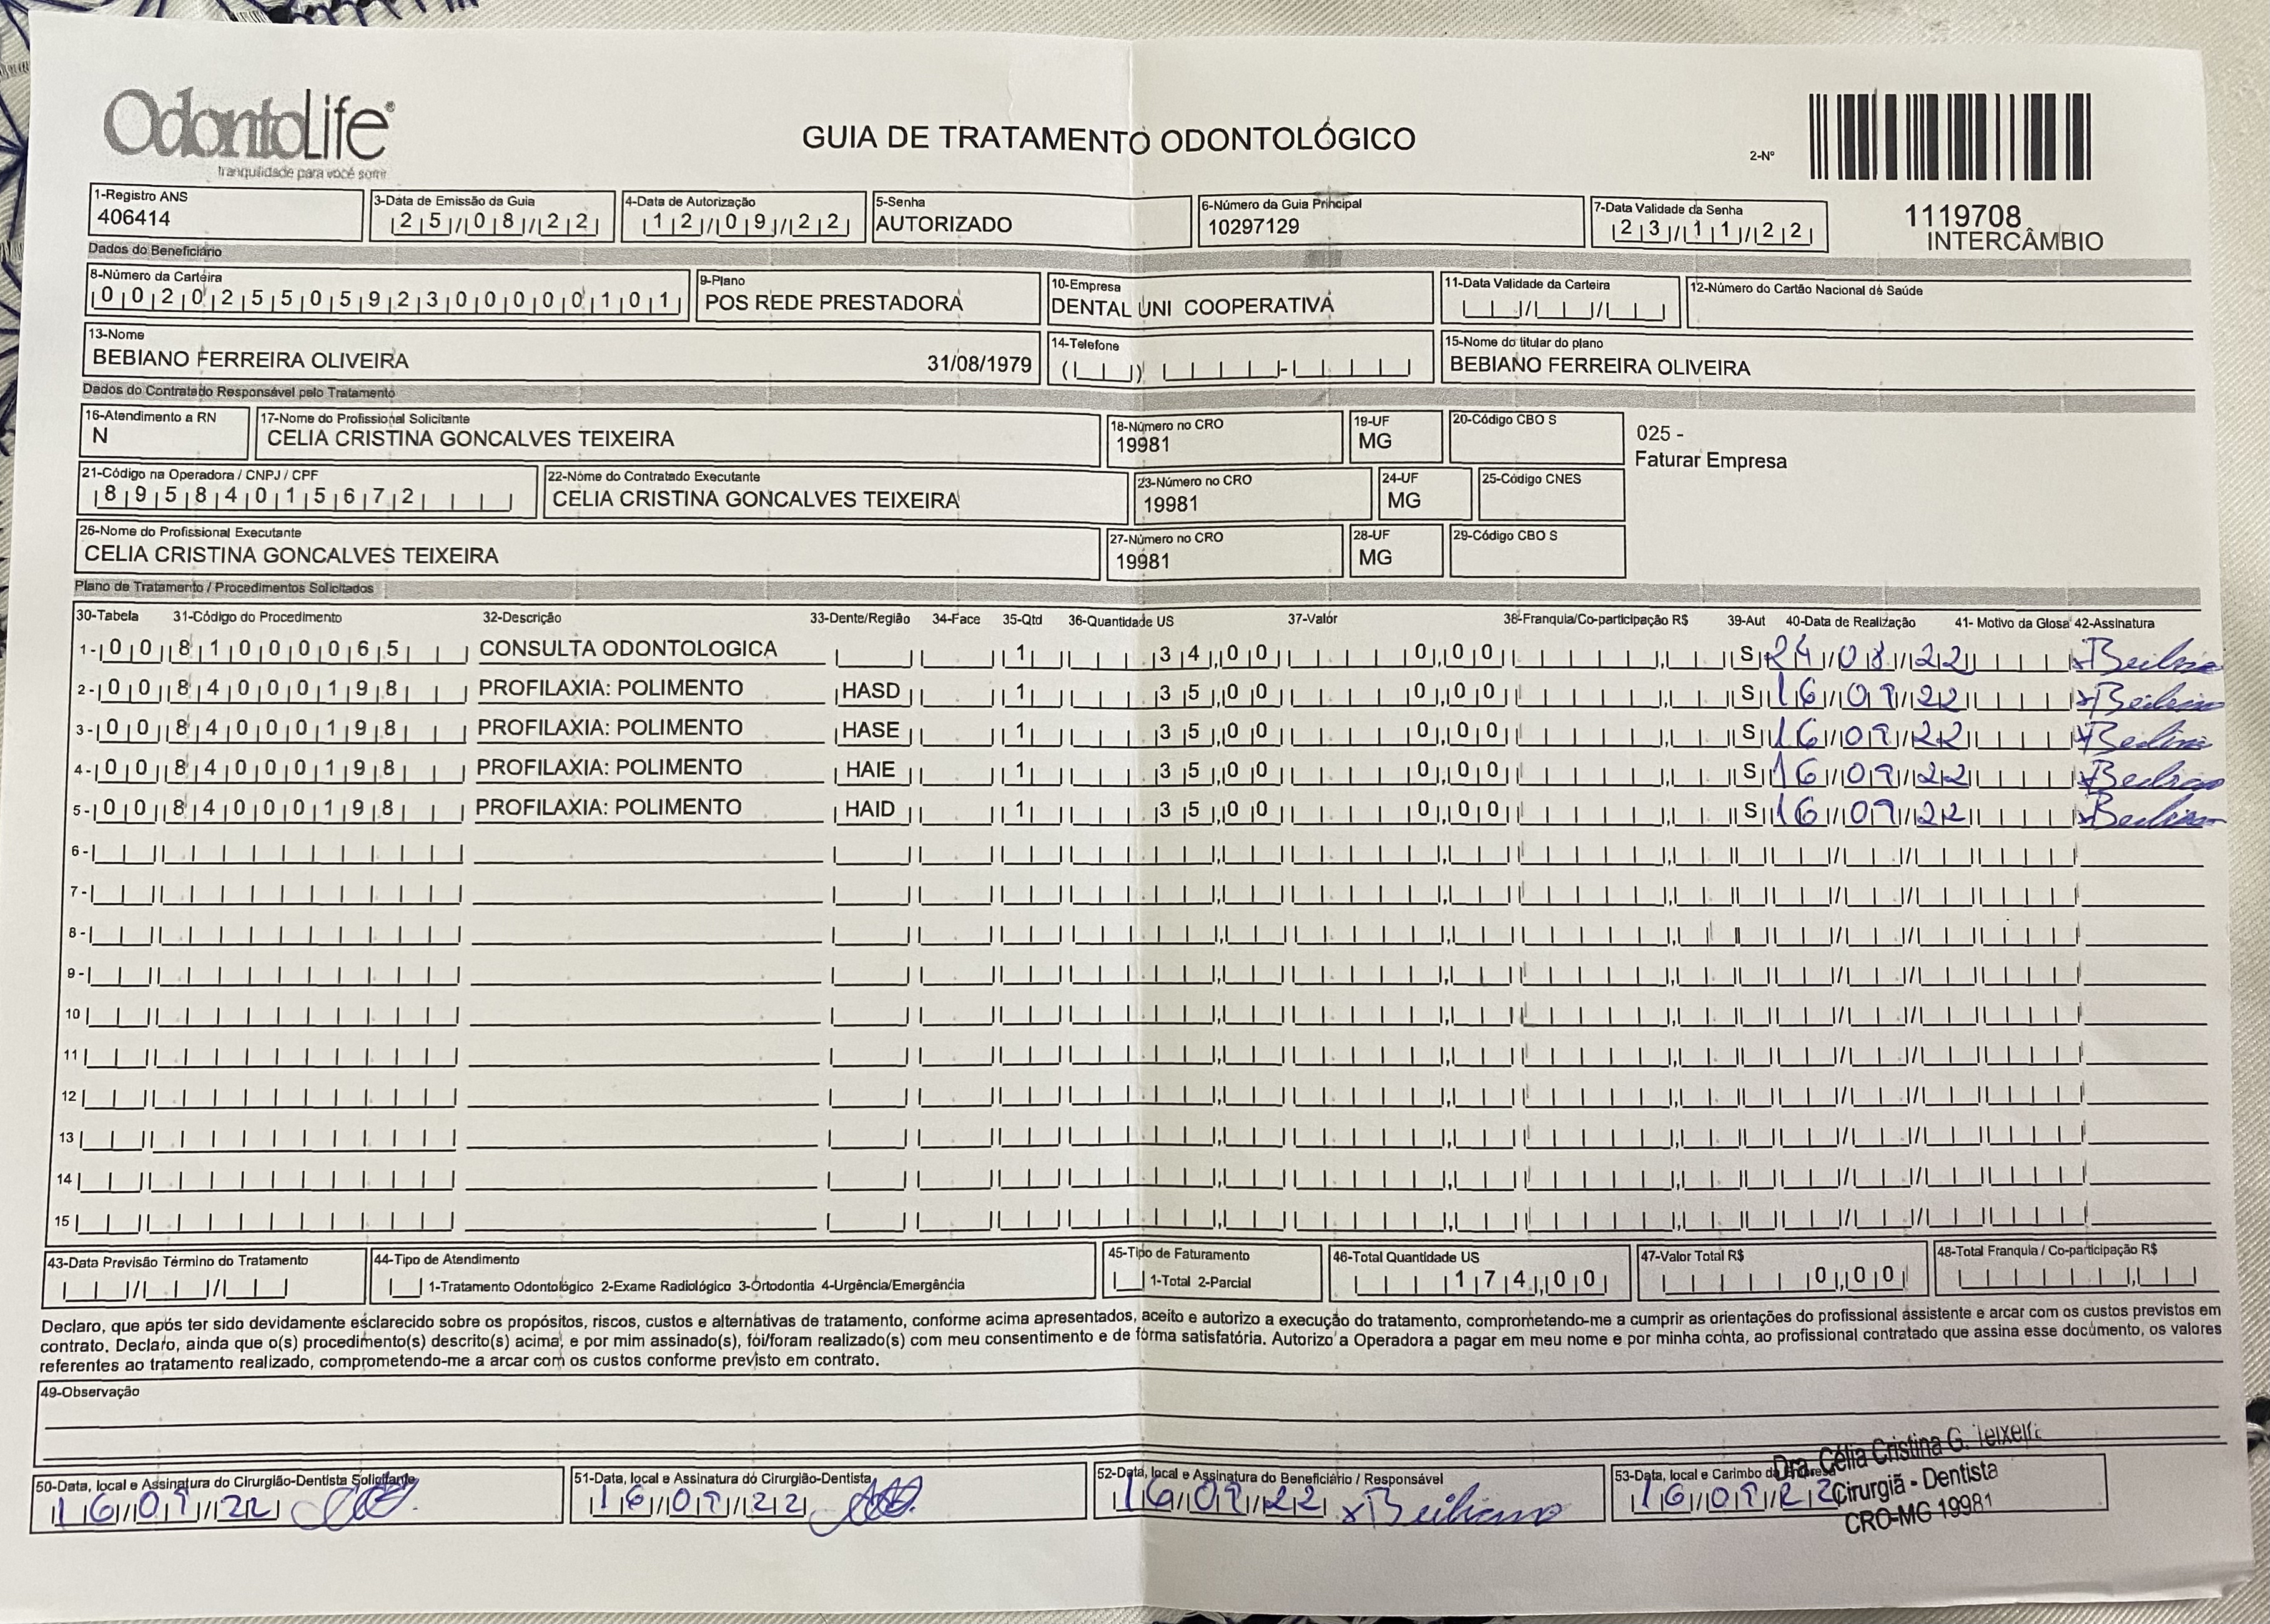 OdontoLife®
tranquilidade para você sorrir
GUIA DE TRATAMENTO ODONTOLÓGICO
2-Nº
1119708
INTERCÂMBIO
1-Registro ANS
406414
3-Data de Emissão da Guia
25/08/22
4-Data de Autorização
12/09/22
5-Senha
AUTORIZADO
6-Número da Guia Principal
10297129
7-Data Validade da Senha
23/11/22
Dados do Beneficiário
8-Número da Carteira
00202550592300000101
9-Plano
POS REDE PRESTADORA
10-Empresa
DENTAL UNI COOPERATIVA
11-Data Validade da Carteira
12-Número do Cartão Nacional de Saúde
13-Nome
BEBIANO FERREIRA OLIVEIRA 31/08/1979
14-Telefone
15-Nome do titular do plano
BEBIANO FERREIRA OLIVEIRA
Dados do Contratado Responsável pelo Tratamento
16-Atendimento a RN
N
17-Nome do Profissional Solicitante
CELIA CRISTINA GONCALVES TEIXEIRA
18-Número no CRO
19981
19-UF
MG
20-Código CBO S
025 -
Faturar Empresa
21-Código na Operadora / CNPJ / CPF
89584015672
22-Nome do Contratado Executante
CELIA CRISTINA GONCALVES TEIXEIRA
23-Número no CRO
19981
24-UF
MG
25-Código CNES
26-Nome do Profissional Executante
CELIA CRISTINA GONCALVES TEIXEIRA
27-Número no CRO
19981
28-UF
MG
29-Código CBO S
Plano de Tratamento / Procedimentos Solicitados
30-Tabela 31-Código do Procedimento 32-Descrição 33-Dente/Região 34-Face 35-Qtd 36-Quantidade US 37-Valor 38-Franquia/Co-participação R$ 39-Aut 40-Data de Realização 41- Motivo da Glosa 42-Assinatura
1- 00 81000065 CONSULTA ODONTOLOGICA 1 34,00 0,00 S 24/08/22
2- 00 84000198 PROFILAXIA: POLIMENTO HASD 1 35,00 0,00 S 16/09/22
3- 00 84000198 PROFILAXIA: POLIMENTO HASE 1 35,00 0,00 S 16/09/22
4- 00 84000198 PROFILAXIA: POLIMENTO HAIE 1 35,00 0,00 S 16/09/22
5- 00 84000198 PROFILAXIA: POLIMENTO HAID 1 35,00 0,00 S 16/09/22
6-
7-
8-
9-
10
11
12
13
14
15
43-Data Previsão Término do Tratamento
44-Tipo de Atendimento
1-Tratamento Odontológico 2-Exame Radiológico 3-Ortodontia 4-Urgência/Emergência
45-Tipo de Faturamento
1-Total 2-Parcial
46-Total Quantidade US
174,00
47-Valor Total R$
0,00
48-Total Franquia / Co-participação R$
Declaro, que após ter sido devidamente esclarecido sobre os propósitos, riscos, custos e alternativas de tratamento, conforme acima apresentados, aceito e autorizo a execução do tratamento, comprometendo-me a cumprir as orientações do profissional assistente e arcar com os custos previstos em
contrato. Declaro, ainda que o(s) procedimento(s) descrito(s) acima, e por mim assinado(s), foi/foram realizado(s) com meu consentimento e de forma satisfatória. Autorizo a Operadora a pagar em meu nome e por minha conta, ao profissional contratado que assina esse documento, os valores
referentes ao tratamento realizado, comprometendo-me a arcar com os custos conforme previsto em contrato.
49-Observação
50-Data, local e Assinatura do Cirurgião-Dentista Solicitante
16/09/22
51-Data, local e Assinatura do Cirurgião-Dentista
16/09/22
52-Data, local e Assinatura do Beneficiário / Responsável
16/09/22 x Bebiano
53-Data, local e Carimbo da Empresa
16/09/22
Dra. Célia Cristina G. Teixeira
Cirurgiã - Dentista
CRO-MG 19981